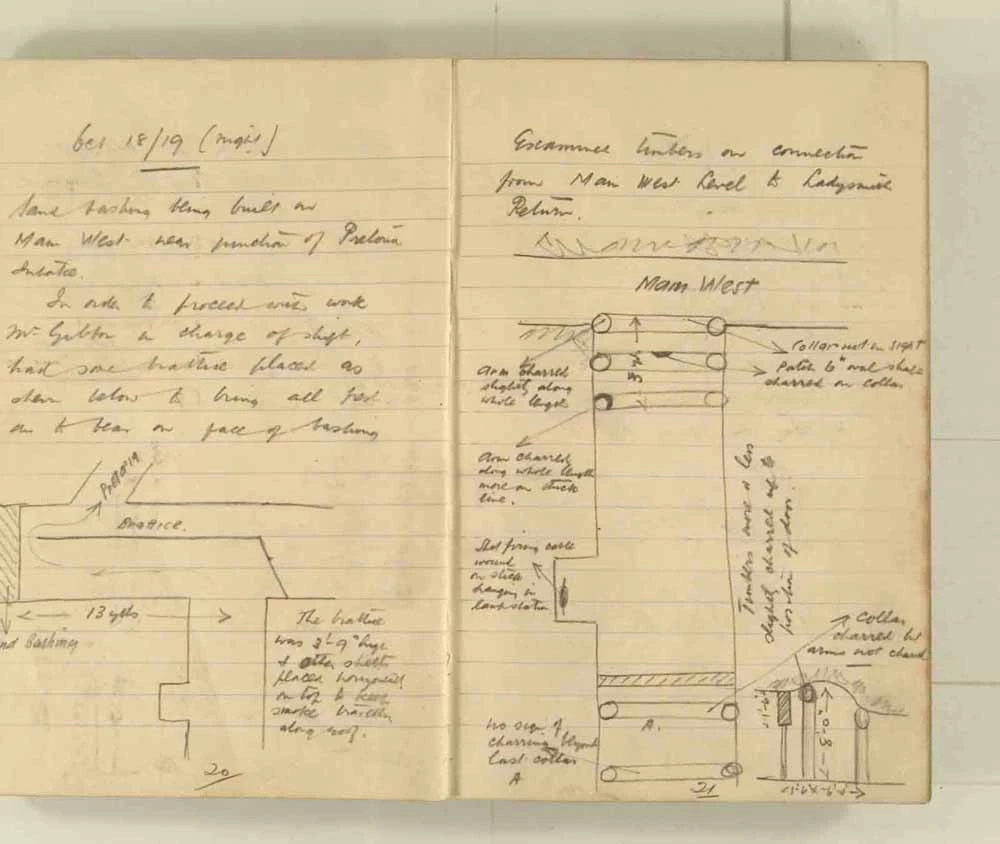 Oct 18/19 (night)
Sand bashing being built on
Main West near junction of Pretoria
Intake.
In order to proceed with work
Mr Gibbon in charge of shift,
had some brattice placed as
shewn below to bring all fresh
air to bear on face of bashing
Pretoria
Brattice.
13 yds
nd Bashing
The brattice
was 3'-9" high
& other sheets
placed horizontal
on top to keep
smoke travelling
along roof.
20
Examined timbers on connection
from Main West Level to Ladysmith
Return.
Main West
3 yds
Collar not in sight
Patch 6" oval shape
charred on collar
Arm charred
slightly along
whole length
Arm charred
along whole length
more on thick
line.
Timbers more or less
slightly charred up to
position of door.
Shot firing cable
wound
on stick
hanging in
lamp station
Collar
charred but
arms not charred
A.
No sign of
charring beyond
last collar
A
21